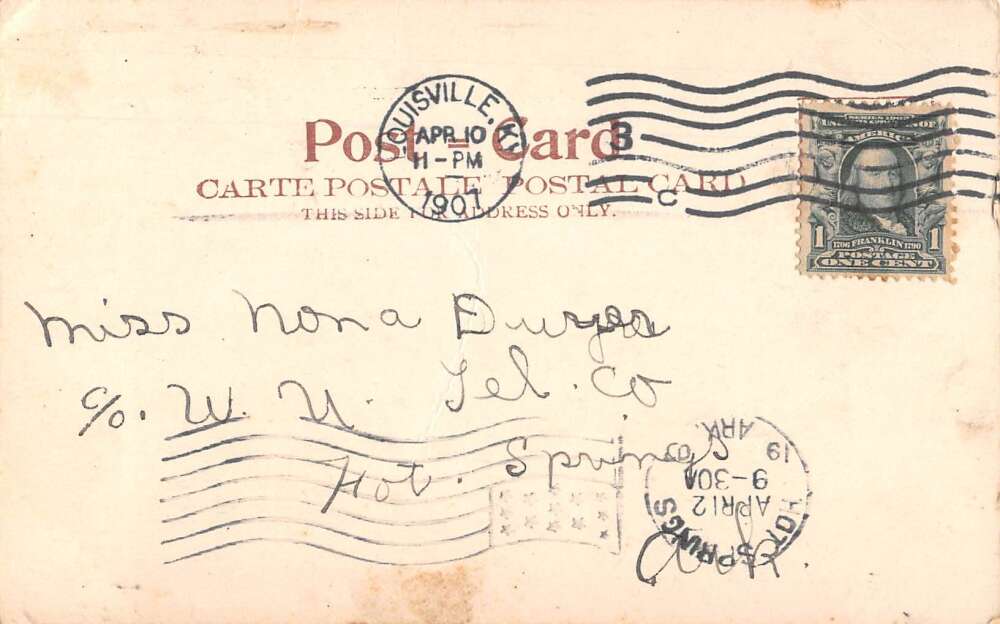 LOUISVILLE, KY.
APR 10
11-PM
1907
B
C
Post = Card
CARTE POSTALE POSTAL CARD
THIS SIDE FOR ADDRESS ONLY.
SERIES 1902
AMERICA
1706 FRANKLIN 1790
POSTAGE
1 ONE CENT 1
Miss Nona
c/o. W. U. Tel. Co
Hot. Springs
Ark.
HOT SPRINGS
APR 12
9-30A
19
ARK.